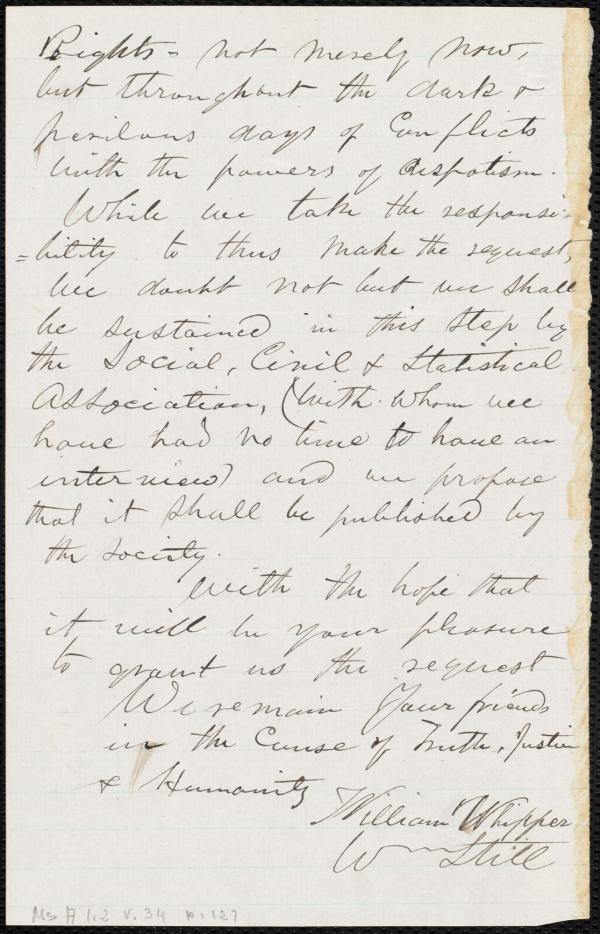 Rights - not merely now,
but throughout the dark &
perilous days of Conflicts
with the powers of despotism.
While we take the responsi-
=bility to thus make the request,
we doubt not but we shall
be sustained in this step by
the Social, Civil & Statistical
Association, (with whom we
have had no time to have an
interview) and we propose
that it shall be published by
the society.
With the hope that
it will be your pleasure
to grant us the request
We remain Your friends
in the Cause of Truth, Justice
& Humanity
William Whipper
Wm Still
Ms A 1.2 v. 34 p. 127